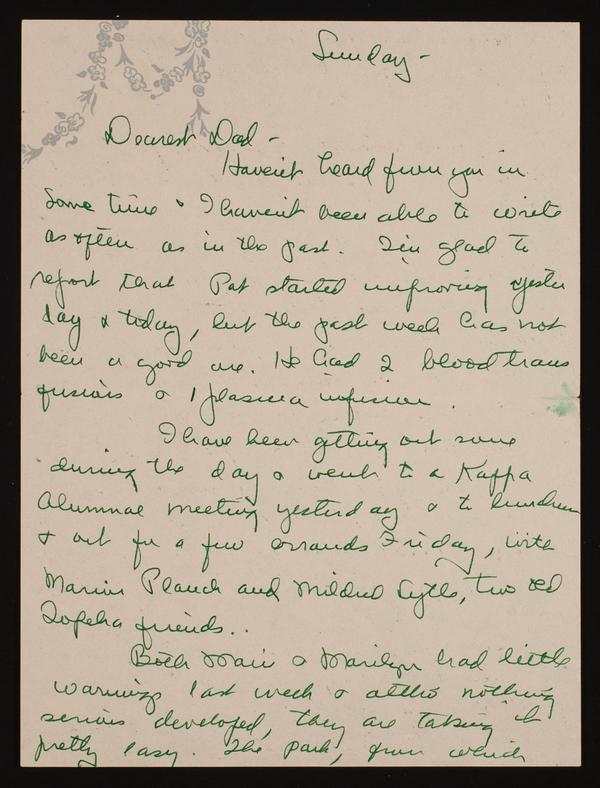 Sunday -
Dearest Dad -
Haven't heard from you in
some time & I haven't been able to write
as often as in the past. I'm glad to
report that Pat started improving yester
day & today, but the past week has not
been a good one. He had 2 blood trans
fusions & 1 plasma infusion.
I have been getting out some
during the day & went to a Kappa
Alumnae meeting yesterday & to luncheon
& out for a few errands Friday, with
Marion and Mildred, two old
Topeka friends..
Both & Marilyn had little
warnings last week & altho nothing
serious developed, they are taking it
pretty easy. The park, from which